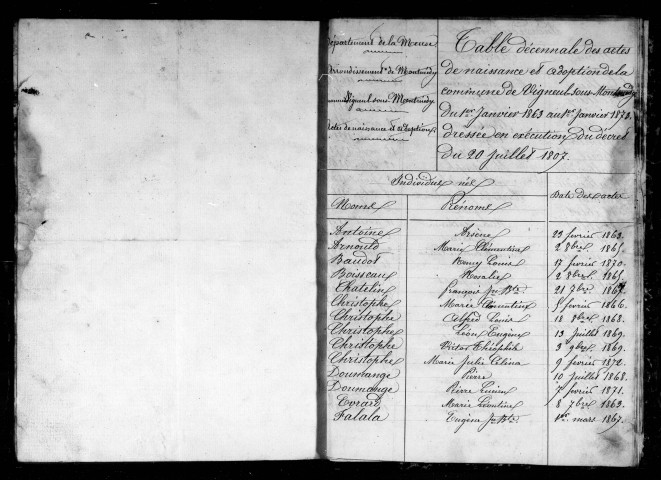 Département de la Meuse
Arrondissement de Montmédy
Vigneul sous Montmédy
Actes de naissance et adoption
Table décennale des actes
de naissance et adoption de la
commune de Vigneul-sous-Montmédy
Du 1er Janvier 1863 au 1er Janvier 1873.
dressée en exécution du décret
du 20 Juillet 1807.
Individus nés
Noms Prénoms Date des actes
Antoine Arsène 23 février 1863.
Arnould Marie Clémentine 2 8bre 1865.
Baudot Remy Louis 17 février 1870.
Boisseau Rosalie 2 8bre 1865.
Chatelin François Jn Bte 21 7bre
Christophe Marie 5 février 1866.
Christophe Alfred Louis 18 1868.
Christophe Léon Eugène 13 juillet 1869.
Christophe Victor Théophile 3 9bre 1869.
Christophe Marie Julie Alina 9 février 1872.
Doumange Pierre 10 juillet 1868.
Doumange Pierre Lucien 7 février 1871.
Evrard Marie Léontine 8 7bre 1863.
Falala Eugène Jn Bte 1er mars 1867.